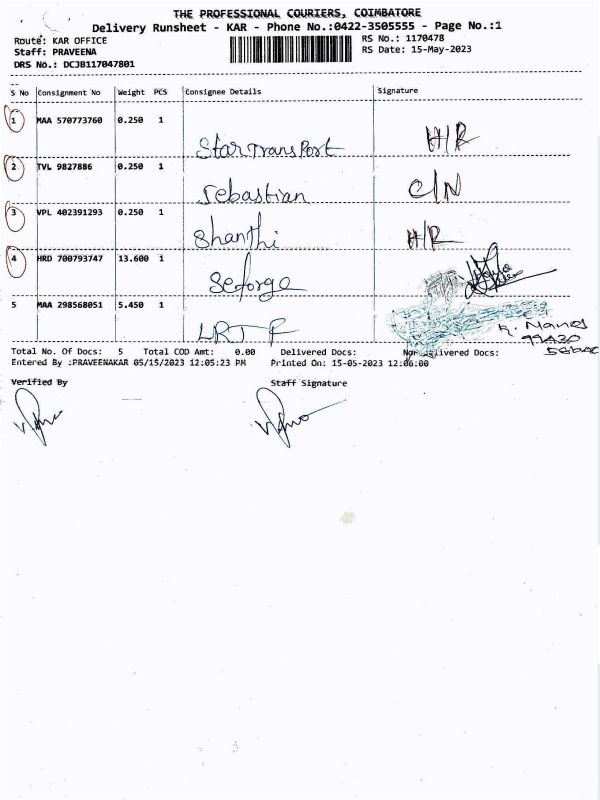 THE PROFESSIONAL COURIERS, COIMBATORE
Delivery Runsheet - KAR - Phone No.:0422-3505555 - Page No.:1
Route: KAR OFFICE RS No.: 1170478
Staff: PRAVEENA RS Date: 15-May-2023
DRS No.: DCJB117047801
S No Consignment No Weight PCS Consignee Details Signature
1 MAA 570773760 0.250 1
Star Transport H/R
2 TVL 9827886 0.250 1
Sebastian C/N
3 VPL 402391293 0.250 1
Shanthi H/R
4 HRD 700793747 13.600 1
Seforge
5 MAA 298568051 5.450 1
LRT F R. Manoj
99430
Total No. Of Docs: 5 Total COD Amt: 0.00 Delivered Docs: Non Delivered Docs:
Entered By :PRAVEENAKAR 05/15/2023 12:05:23 PM Printed On: 15-05-2023 12:06:00
Verified By Staff Signature